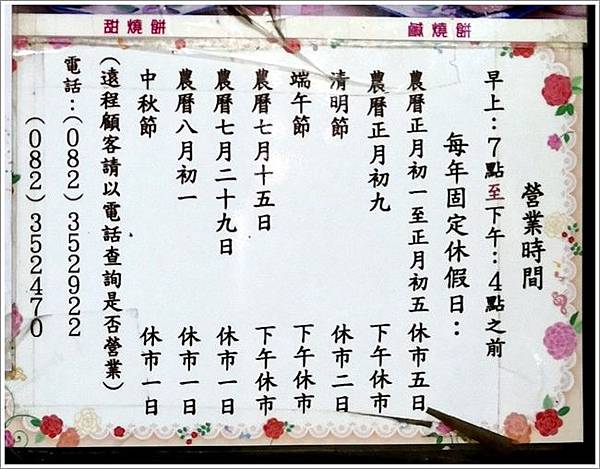 鹹燒餅
甜燒餅
營業時間
早上：7點至下午：4點之前
每年固定休假日：
農曆正月初一至正月初五 休市五日
農曆正月初九 下午休市
清明節 休市二日
端午節 下午休市
農曆七月十五日 下午休市
農曆七月二十九日 休市一日
農曆八月初一 休市一日
中秋節 休市一日
（遠程顧客請以電話查詢是否營業）
電話：（082）352922
（082）352470